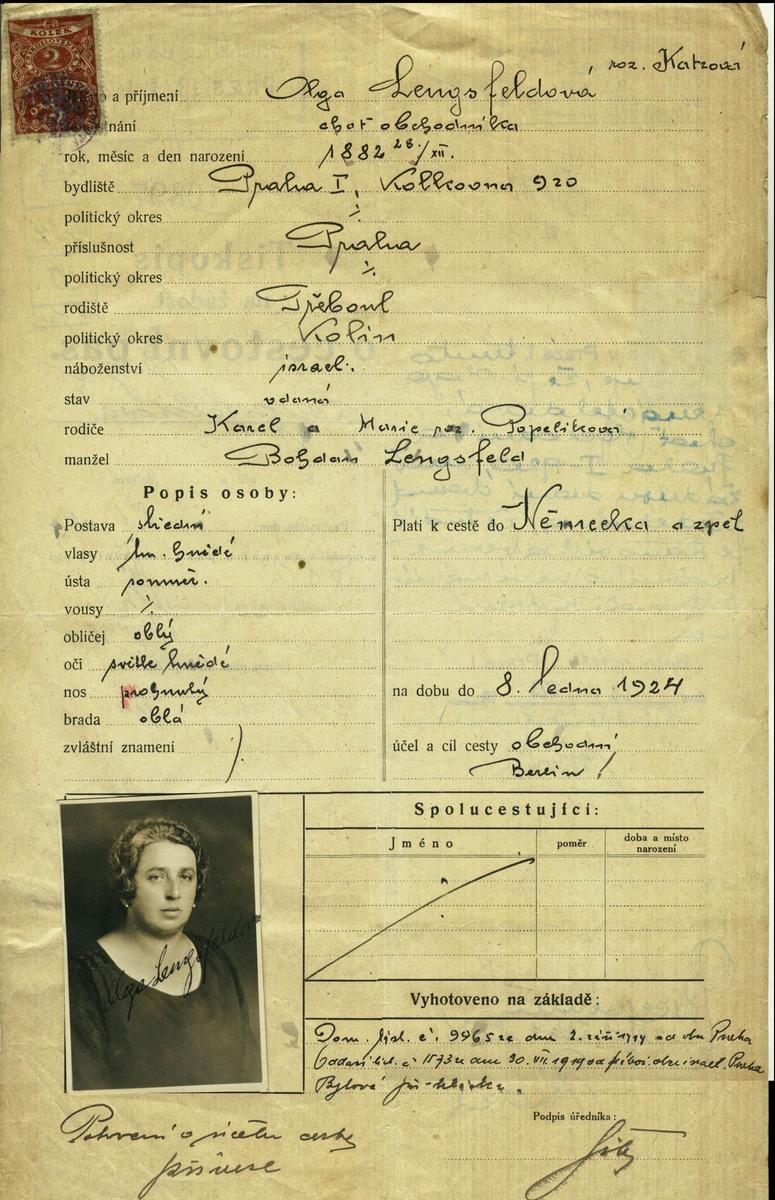 KOLEK
2
roz. Katzová
a příjmení Olga Lengsfeldová
choť obchodníka
rok, měsíc a den narození 1882 28./XII.
bydliště Praha I, Kolkovna 920
politický okres ⁒
příslušnost Praha
politický okres ⁒
rodiště Třeboul
politický okres Kolín
náboženství israel.
stav vdaná
rodiče Karel a Marie roz. Popelíková
manžel Bohdan Lengsfeld
Popis osoby:
Postava střední
vlasy tm. hnědé
ústa souměr.
vousy ⁒
obličej oblý
oči světle hnědé
nos prohnutý
brada oblá
zvláštní znamení
Platí k cestě do Německa a zpět
na dobu do 8. ledna 1924
účel a cíl cesty obchodní
Berlin
Spolucestující:
Jméno poměr doba a místo narození
Olga Lengsfeldová
Vyhotoveno na základě:
Dom. list. č. 9465 ze dne 2. září od Praha
č. 1573 ze dne 20. VII. 1919 israel. Praha
Podpis úředníka:
Potvrzení o účelu cesty